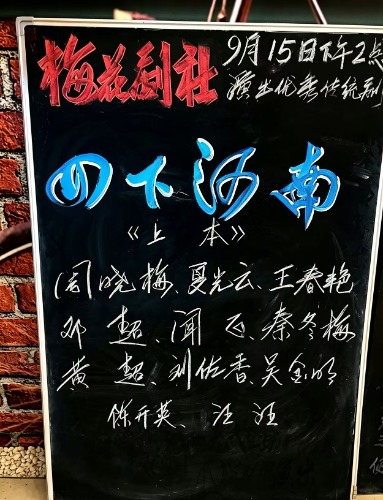 梅花剧社
9月15日下午2点
演出优秀传统剧
四下河南
《上 本》
周晓梅、夏光云、王春艳
邓 超、闻 飞、秦冬梅
黄 超、刘佑香、吴金明
陈开英、汪 洭